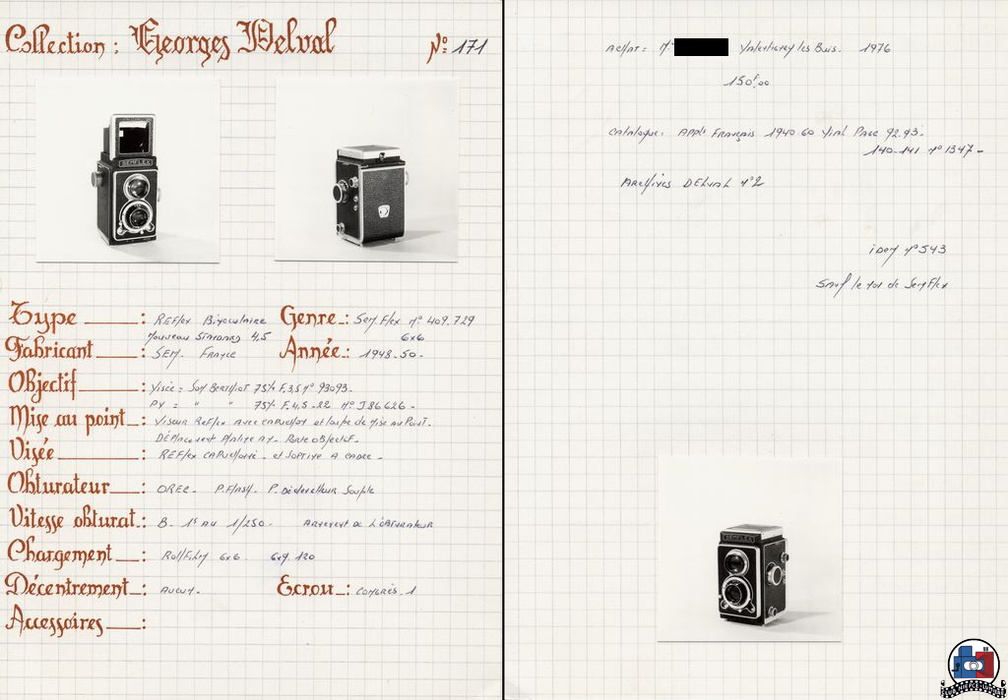 Collection : Georges Delval Nº 171
SEMFLEX
Type : REFlex Binoculaire
Genre : Sem Flex nº 409.729
Nouveau Standard 4,5
6x6
Fabricant : SEM. France
Année : 1948-50-
Objectif : Visée = SOM BERTHIOT 75% F.3,5 nº 93093-
PV = " " 75% F.4,5-22 Nº J86626-
Mise au point : Viseur Reflex avec capuchon et loupe de Mise au Point.
Déplacement Platine AV- Porte objectif-
Visée : REFlex CAPuchon - et sportive A CADRE -
Obturateur : OREC. P.Flash. P. Déclencheur Souple
Vitesse obturat : B. 1s AU 1/250- Armement de l'obturateur
Chargement : RollFilm 6x6 120
Décentrement : Aucun-
Ecrou : Congrès. 1
Accessoires :
Achat : Mr les Bois. 1976
150f,00
Catalogue: App. Français 1940 60 Vial Page 92.93-
140-141 nº 1347-
Archives DELVAL nº2
idem nº 543
Sauf le de SemFlex
SEMFLEX